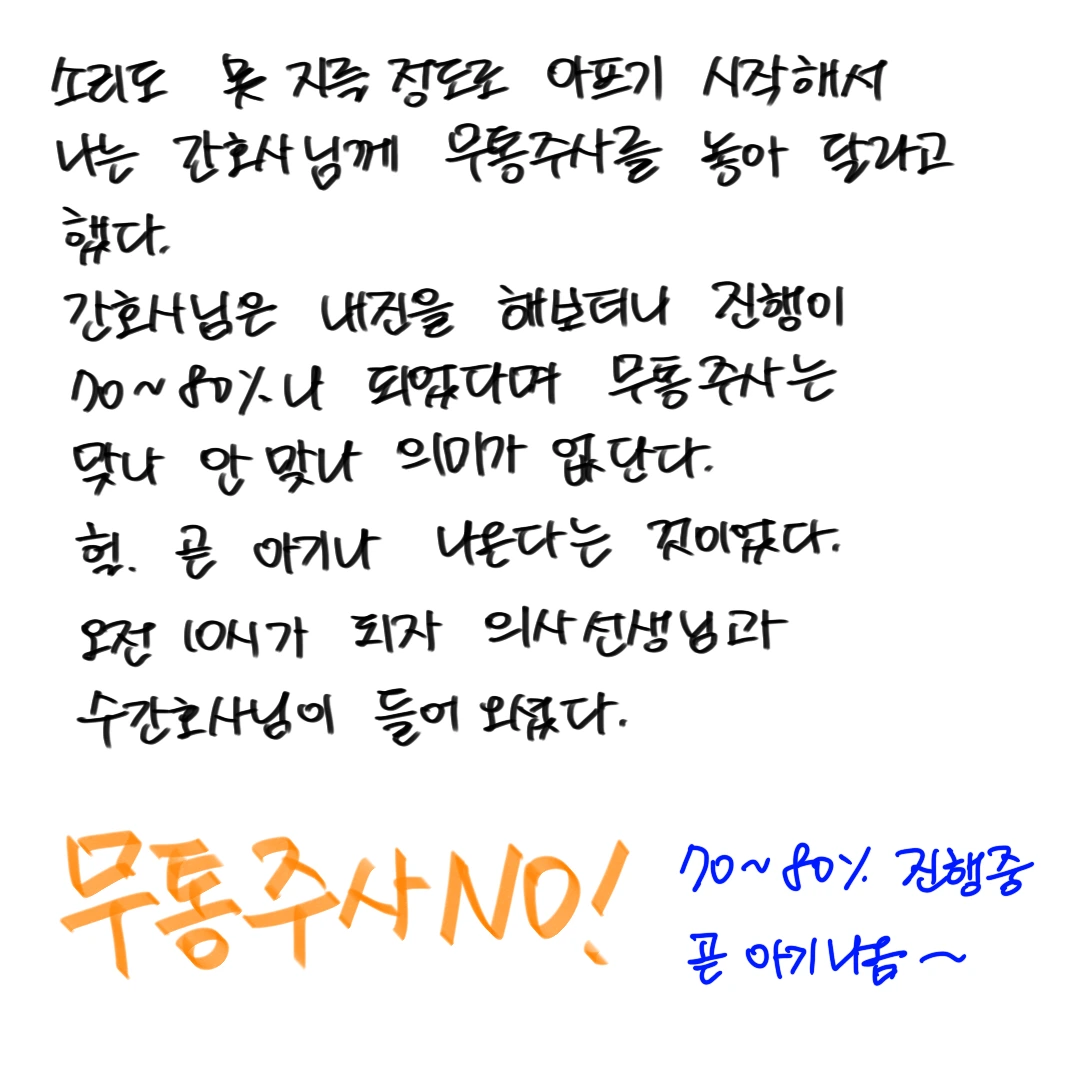 소리도 못 지를 정도로 아프기 시작해서
나는 간호사님께 무통주사를 놓아 달라고
했다.
간호사님은 내진을 해보더니 진행이
70~80%나 되었다며 무통주사는
맞나 안 맞나 의미가 없단다.
헐. 곧 아기나 나온다는 것이었다.
오전 10시가 되자 의사선생님과
수간호사님이 들어 오셨다.
무통주사 NO!
70~80% 진행중
곧 아기나옴~